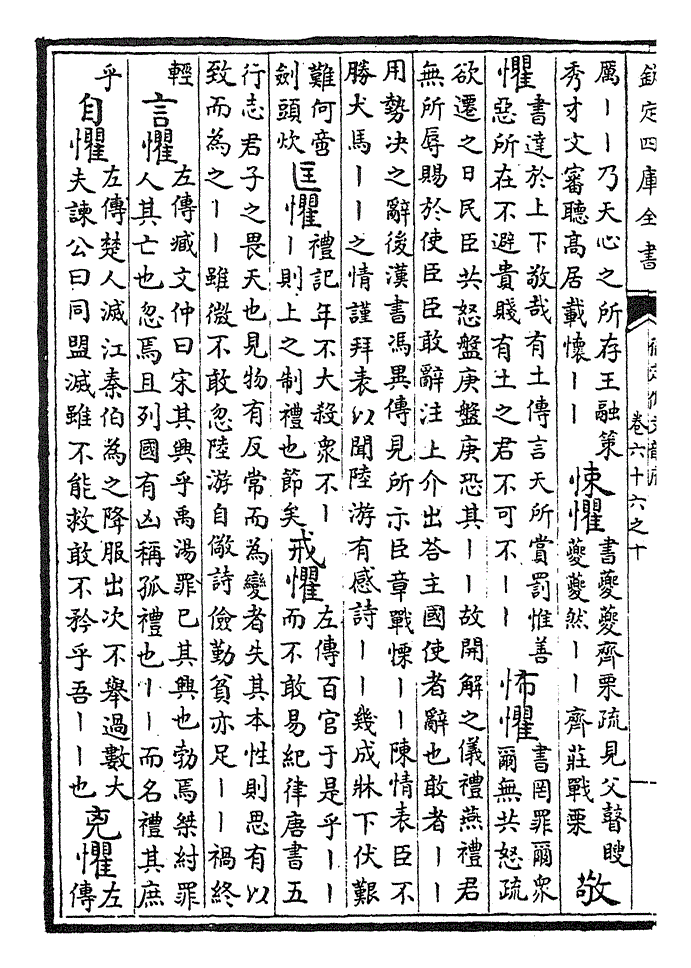 欽定四庫全書
卷六十六之十
厲丨丨乃天心之所存王融策
秀才文審聽高居載懷丨丨
悚懼
書夔夔齊栗疏見父瞽瞍
夔夔然丨丨齊莊戰栗
敬
懼
書達於上下敬哉有土傳言天所賞罰惟善
惡所在不避貴賤有土之君不可不丨丨
怖懼
書罔罪爾衆
爾無共怒疏
欲遷之日民臣共怒盤庚盤庚恐其丨丨故開解之儀禮燕禮君
無所辱賜於使臣臣敢辭注上介出荅主國使者辭也敢者丨丨
用勢决之辭後漢書馮異傳見所示臣章戰慄丨丨陳情表臣不
勝犬馬丨丨之情謹拜表以聞陸游有感詩丨丨幾成牀下伏艱
難何啻
劍頭炊
匡懼
禮記年不大殺衆不丨
丨則上之制禮也節矣
戒懼
左傳百官于是乎丨丨
而不敢易紀律唐書五
行志君子之畏天也見物有反常而為變者失其本性則思有以
致而為之丨丨雖微不敢忽陸游自儆詩儉勤貧亦足丨丨禍終
輕
言懼
左傳臧文仲曰宋其興乎禹湯罪已其興也勃焉桀紂罪
人其亡也忽焉且列國有凶稱孤禮也丨丨而名禮其庶
乎
自懼
左傳楚人滅江秦伯為之降服出次不舉過數大
夫諫公曰同盟滅雖不能救敢不矜乎吾丨丨也
兇懼
左
傳